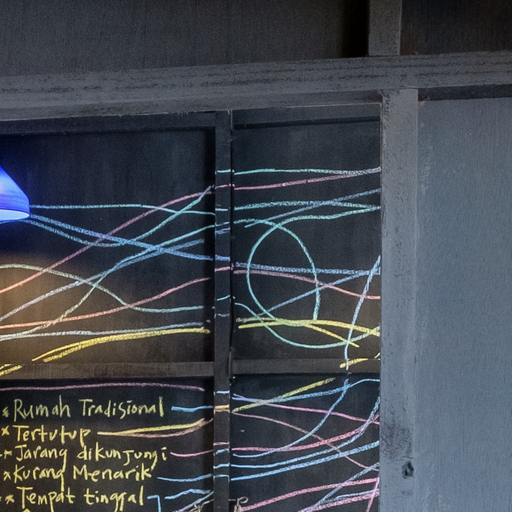 * Rumah Tradisional
* Tertutup
* Jarang dikunjungi
* Kurang Menarik
* Tempat tinggal